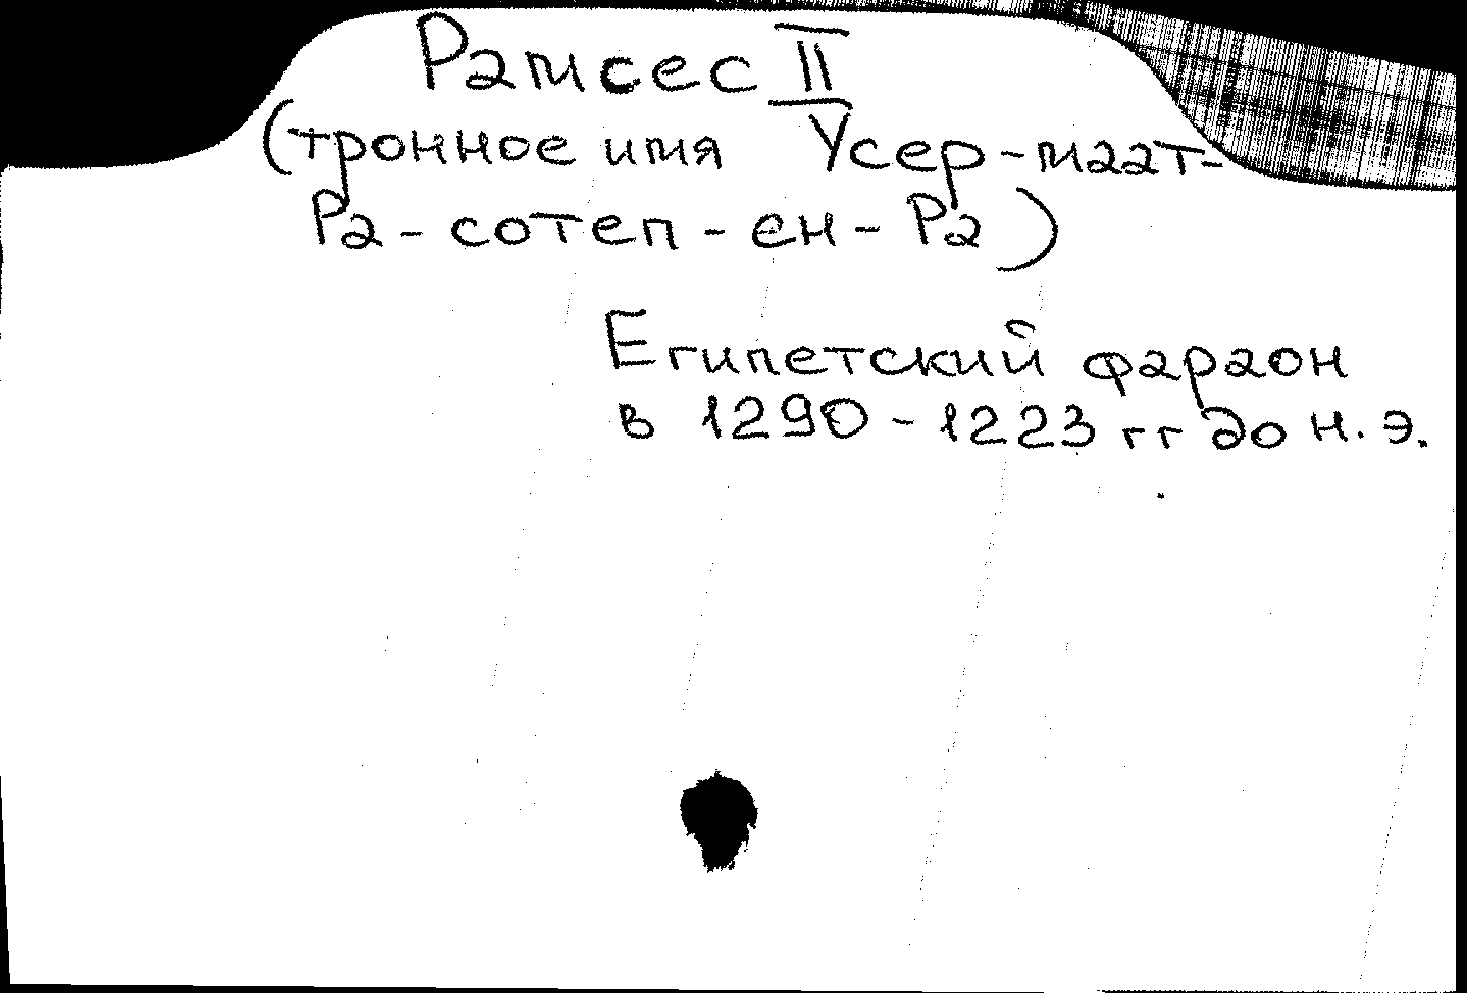 Рамсес II
(тронное имя Усер-маат-
Ра-сотеп-ен-Ра)
Египетский фараон
в 1290-1223 гг до н.э.